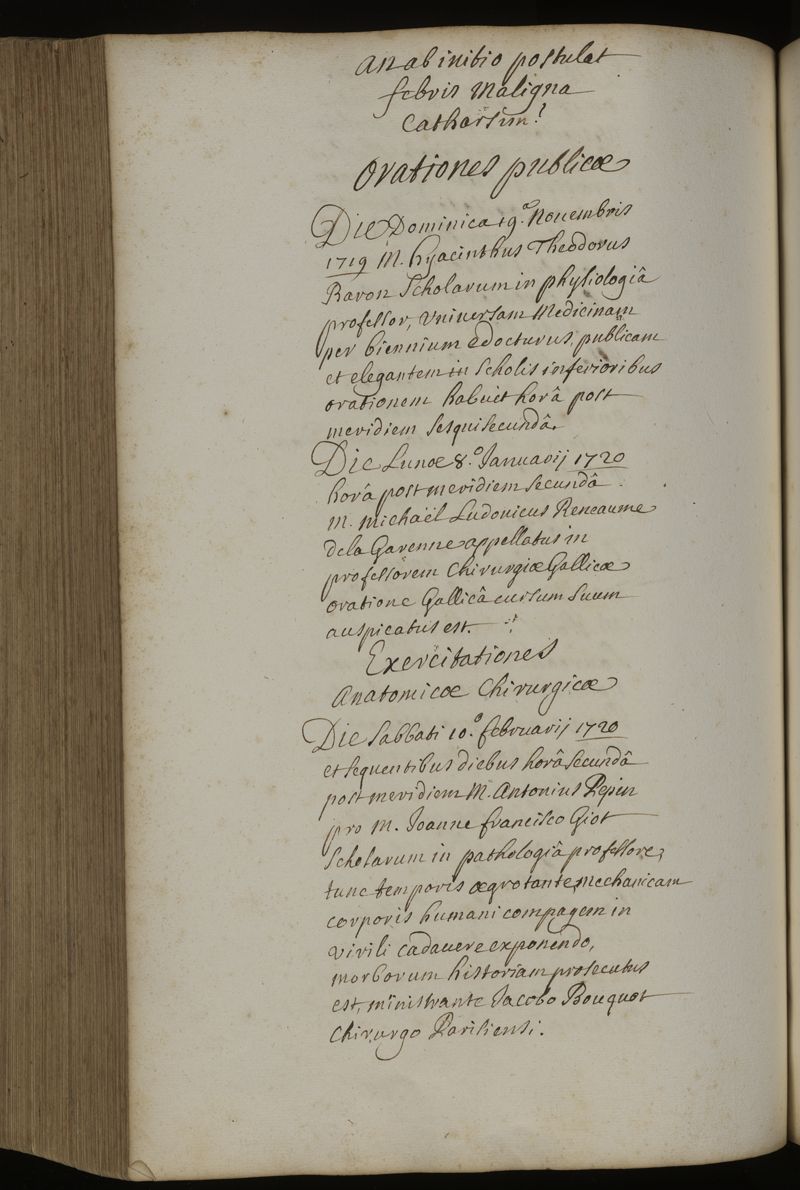 an ab initio postulat
febris maligna
Catharsim?
Orationes publicæ
Die Dominica 19.ª Nouembris
1719 M. hyacinthus Theodorus
Baron Scholarum in physiologiâ
professor, Vniuersam Medicinam
per biennium edocturus, publicam
et elegantem in Scholis inferioribus
orationem habuit horâ post
meridiem sesquisecundâ.
Die Lunæ 8.º Januarij 1720
horâ post meridiem secundâ
M. Michaël Ludouicus Reneaume
dela Garenne appellatus in
professorem Chirurgiæ Gallicæ
oratione Gallicâ cursum suum
auspicatus est.
Exercitationes
Anatomicæ Chirurgicæ
Die Sabbati 10.º februarij 1720
et sequentibus diebus horâ secundâ
post meridiem M. Antonius Pepin
pro M. Joanne francisco Giot
Scholarum in pathologiâ professore,
tunc temporis ægrotante, Mechanicam
corporis humani compagem in
virili cadauere exponendo,
morborum historiam prosecutus
est, ministrante Jacobo Bouquot
Chirurgo Parisiensi.